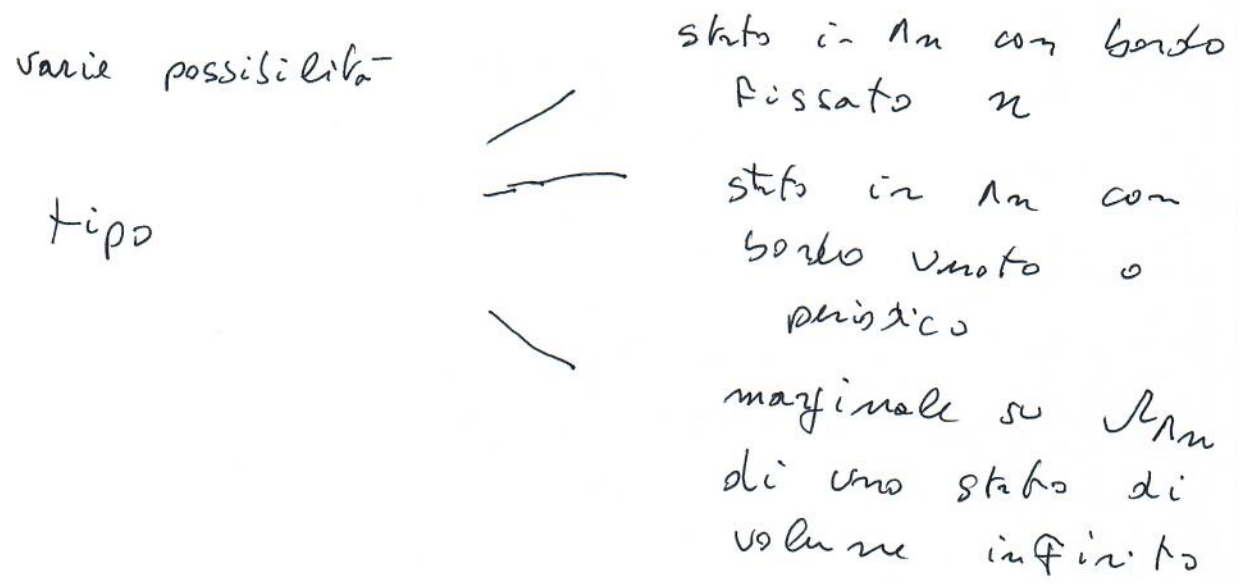 varie possibilità
tipo
stato in Λn con bordo
fissato n
stato in Λn con
bordo vuoto o
periodico
marginale su ΩΛn
di uno stato di
volume infinito